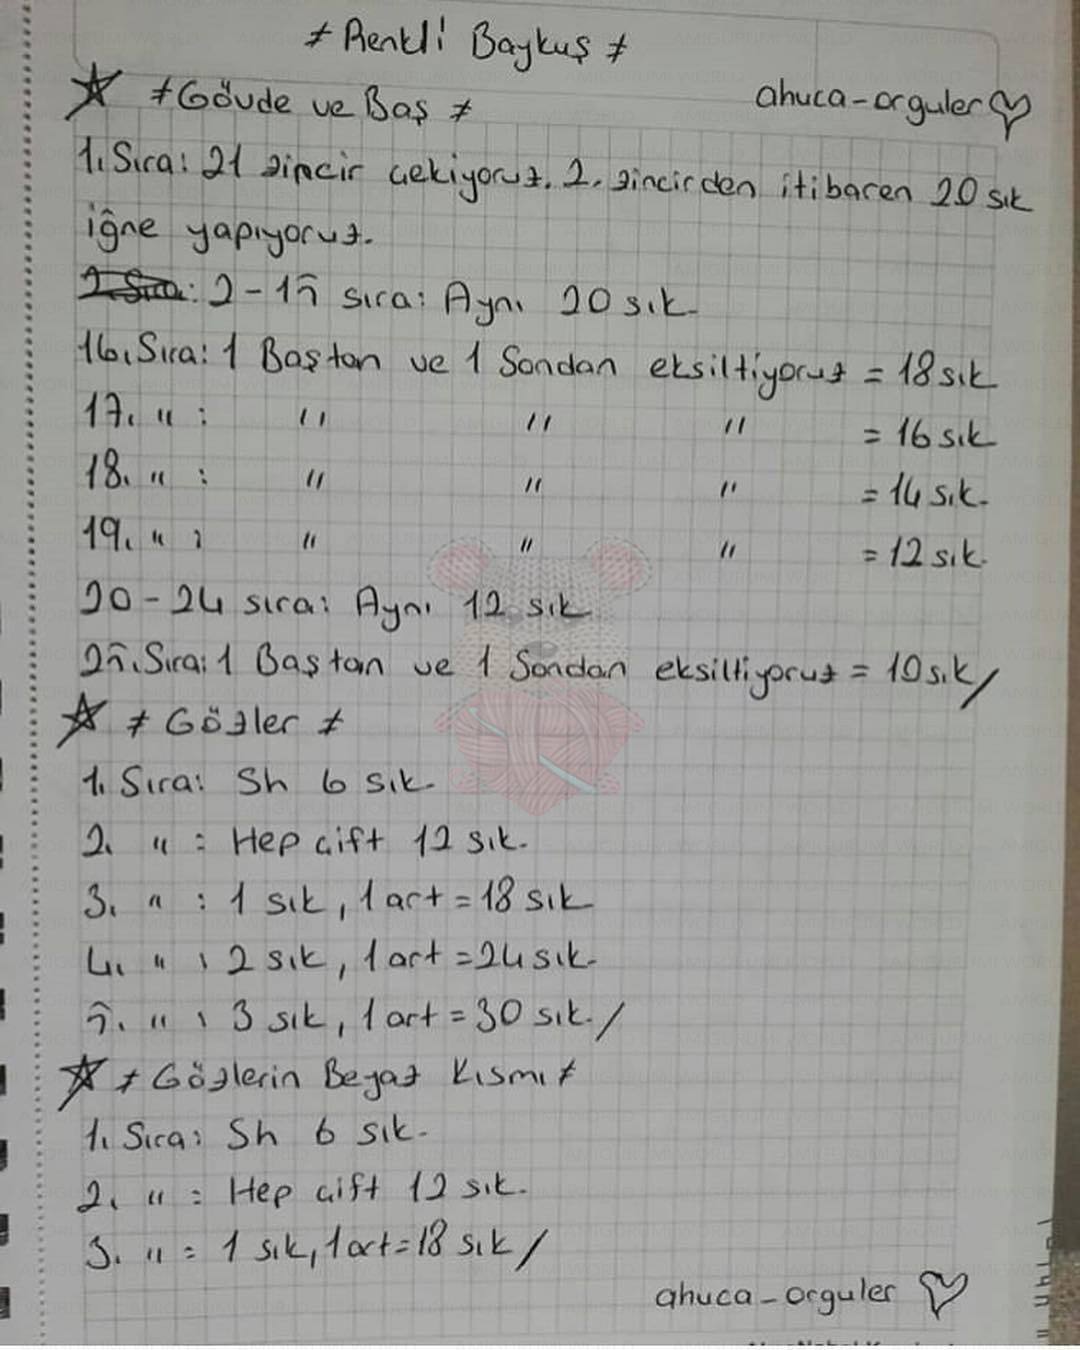 ≠ Renkli Baykuş ≠
≠ Gövde ve Baş ≠
ahuca-orguler
1. Sıra: 21 zincir çekiyoruz. 2. zincirden itibaren 20 sık
iğne yapıyoruz.
2. Sıra: 2-15 sıra: Aynı 20 sık.
16. Sıra: 1 Baştan ve 1 Sondan eksiltiyoruz = 18 sık
17. " : " " " = 16 sık
18. " : " " " = 14 sık.
19. " : " " " = 12 sık.
20-24 sıra: Aynı 12 sık
25. Sıra: 1 Baştan ve 1 Sondan eksiltiyoruz = 10 sık /
≠ Gözler ≠
1. Sıra: Sh 6 sık.
2. " : Hep çift 12 sık.
3. " : 1 sık, 1 art = 18 sık
4. " : 2 sık, 1 art = 24 sık.
5. " : 3 sık, 1 art = 30 sık. /
≠ Gözlerin Beyaz Kısmı ≠
1. Sıra: Sh 6 sık.
2. " = Hep çift 12 sık.
3. " = 1 sık, 1 art = 18 sık /
ahuca_orguler